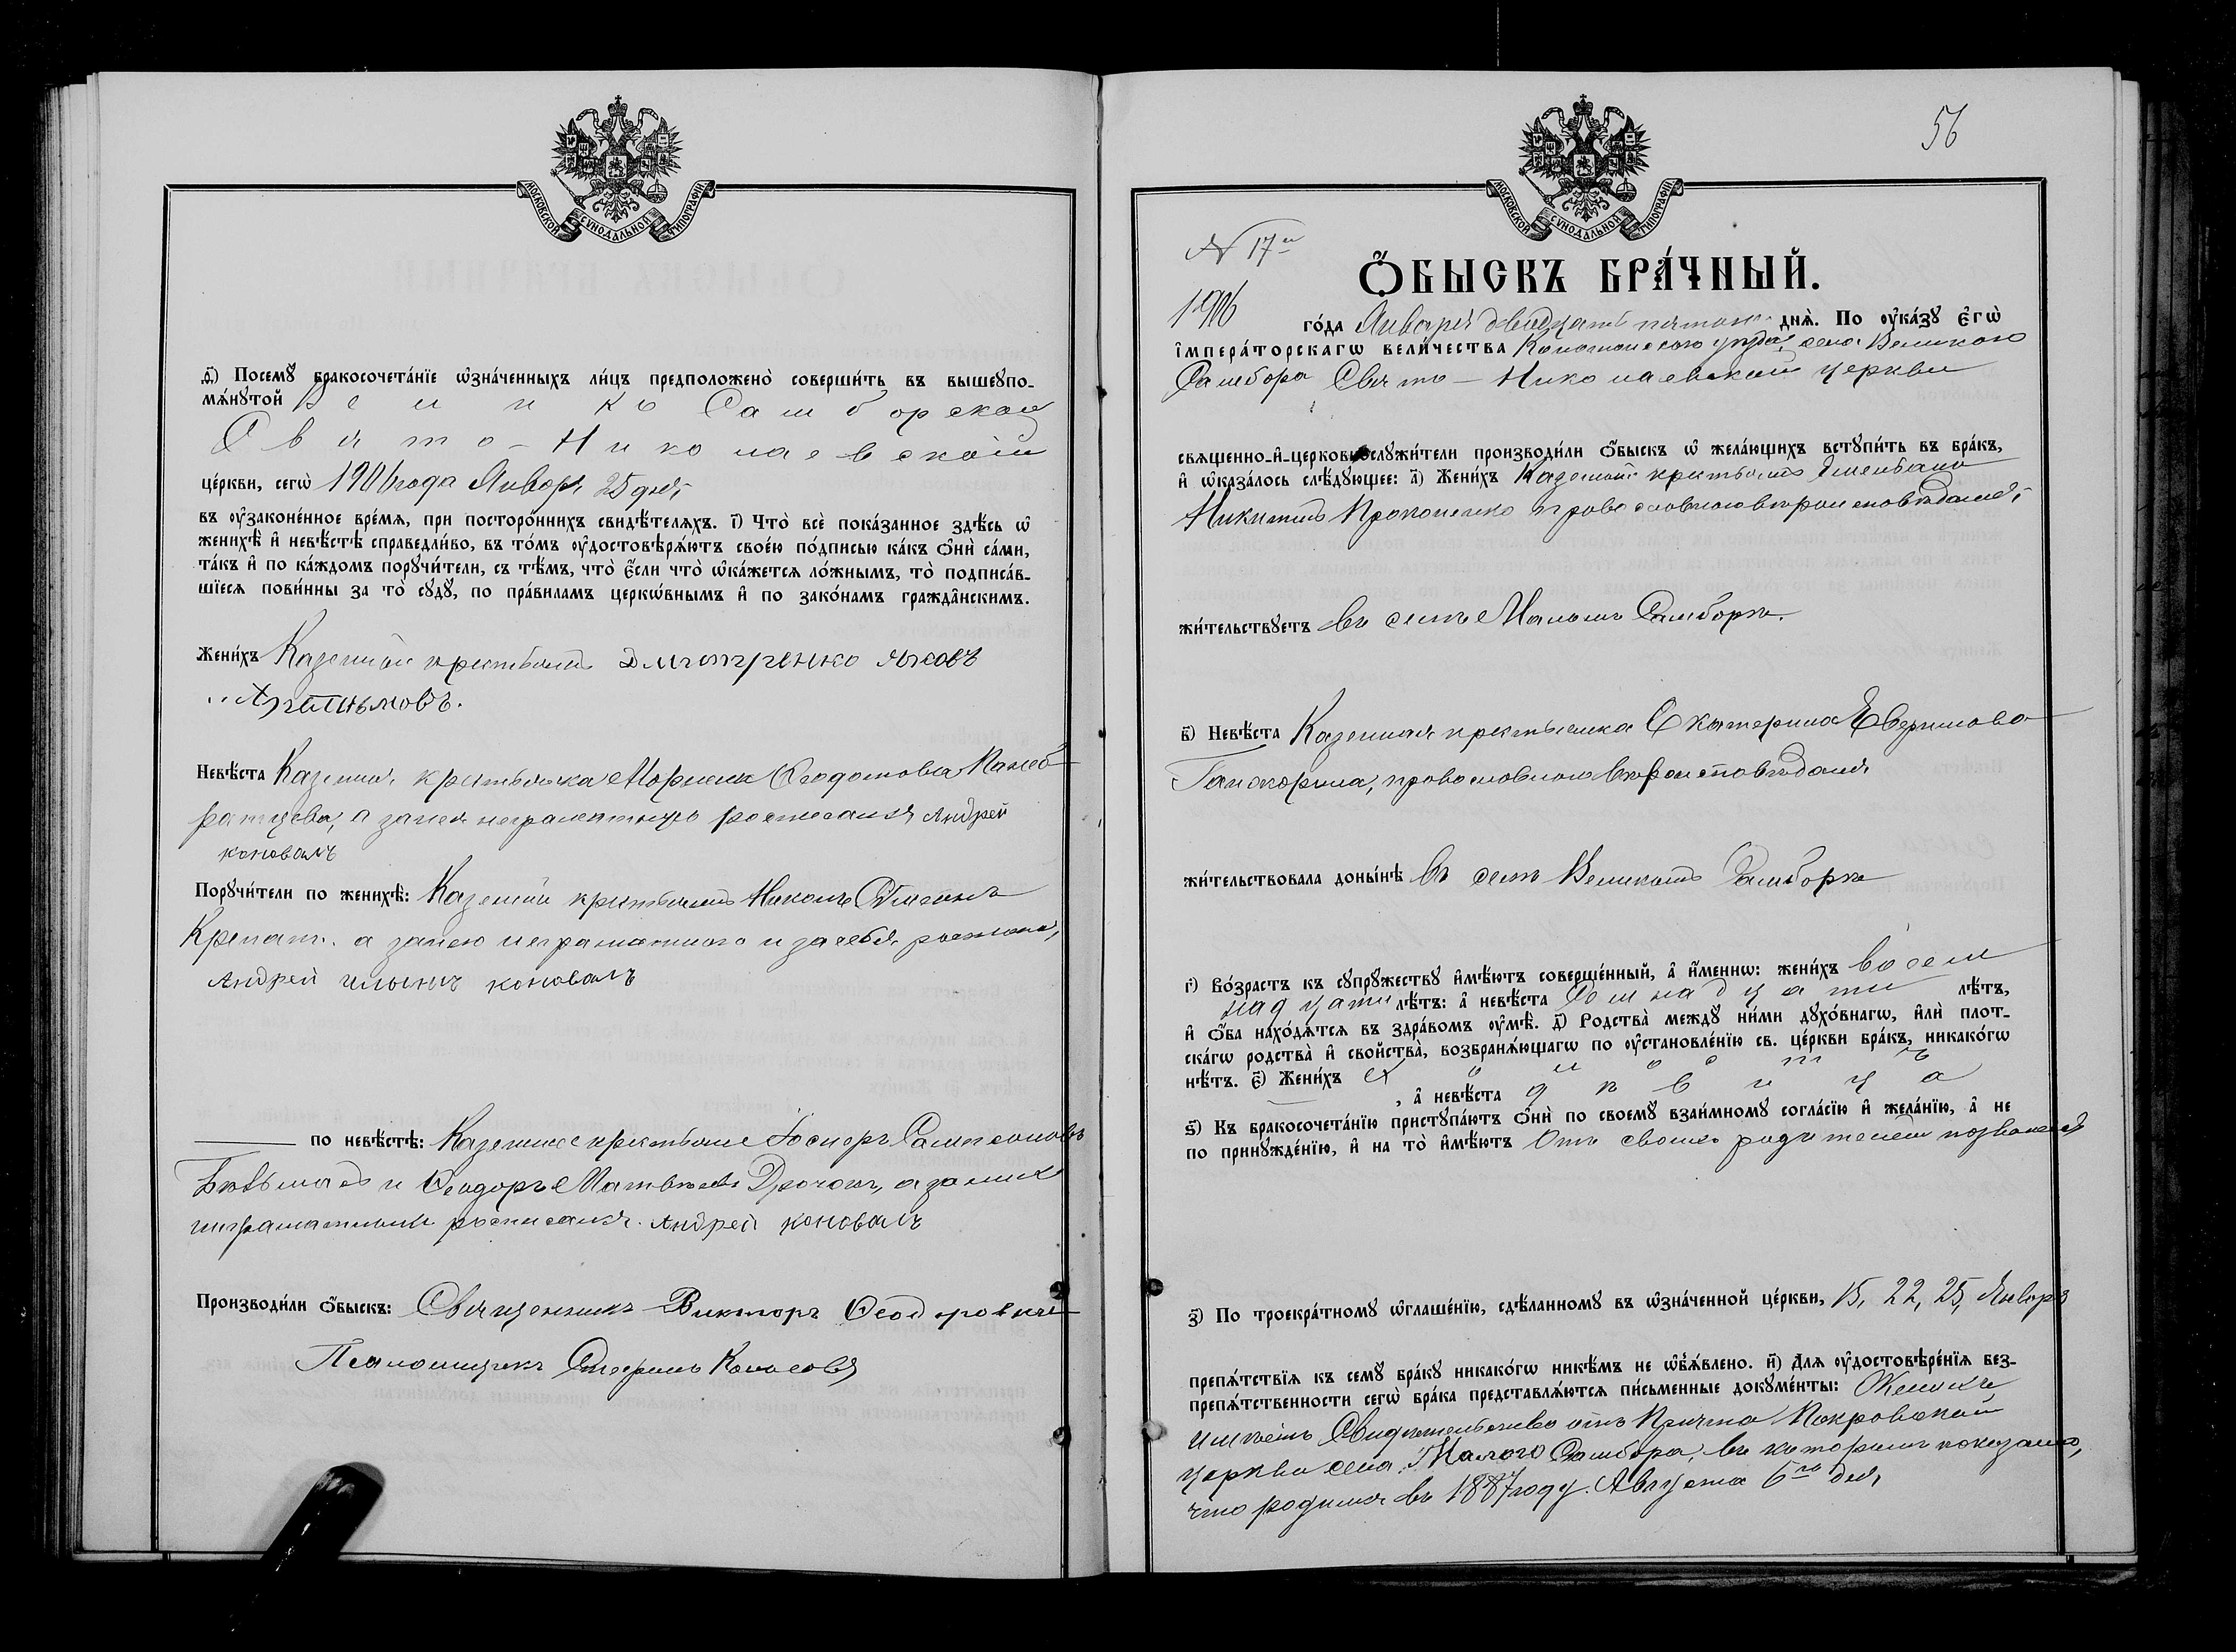 МОСКОВСКОЙ СѴНОДАЛЬНОЙ ТИПОГРАФІИ
ѳ҃) Посемꙋ̀ бракосочета́нїе ѡ҆зна́ченныхъ ли́цъ предположено̀ соверши́ть въ вышеꙋпо-
мѧ́нꙋтой Велико Самборской
Свято-Николаевской
це́ркви, сегѡ̀ 1906 года Января 25 дня
въ ᲂу҆зако́ненное вре́мѧ, при посторо́ннихъ свидѣ́телѧхъ. і҃) Что̀ всѐ пока́занное здѣ́сь ѡ҆
женихѣ̀ и҆ невѣ́стѣ справедли́во, въ то́мъ ᲂу҆достовѣрѧ́ютъ свое́ю по́дписью ка́къ ѻ҆нѝ са́ми,
та́къ и҆ по ка́ждомъ порꙋчи́тели, съ тѣ́мъ, что̀ є҆́сли что̀ ѡ҆ка́жетсѧ ло́жнымъ, то̀ подписа́в-
шїесѧ пови́нны за то̀ сꙋдꙋ̀, по пра́виламъ церкѡ́внымъ и҆ по зако́намъ гражда́нскимъ.
Жени́хъ Казенный крестьянинъ Дмитренко Яковъ
Невѣ́ста Казенная крестьянка
а за нея неграмотную росписался Андрей
коновалъ
Порꙋчи́тели по женихѣ̀: Казенный крестьянинъ
а за него неграмотного и за себя
Андрей ильичъ коновалъ
по невѣ́стѣ: Казенные крестьяне
и Ѳеодоръ Матвѣевъ а за нихъ
неграмотныхъ росписался Андрей коновалъ
Производи́ли ѻ҆́быскъ: Священникъ Викторъ Ѳеодоровичъ
Псаломщикъ
56
МОСКОВСКОЙ СѴНОДАЛЬНОЙ ТИПОГРАФІИ
N 17й
Ѻ҆́БЫСКЪ БРА́ЧНЫЙ.
1906 го́да Января двадцать пятого днѧ̀. По ᲂу҆ка́зꙋ є҆гѡ̀
і҆мпера́торскагѡ вели́чества Конотопского уѣзда, села Великого
Самбора Свято-Николаевской церкви
свѧщенно-и҆-церковнослꙋжи́тели производи́ли ѻ҆́быскъ ѡ҆ жела́ющихъ встꙋпи́ть въ бра́къ,
и҆ ѡ҆каза́лось слѣ́дꙋющее: а҃) Жени́хъ Казенный крестьянинъ
Никитинъ православного вѣроисповѣданія
жи́тельствꙋетъ въ селѣ Маломъ Самборѣ.
в҃) Невѣ́ста Казенная крестьянка Екатерина
православного вѣроисповѣданія
жи́тельствовала доны́нѣ въ селѣ Великомъ Самборѣ
г҃) Во́зрастъ къ сꙋпрꙋ́жествꙋ и҆мѣ́ютъ соверше́нный, а҆ и҆́меннѡ: жени́хъ восем
надцати лѣ́тъ: а҆ невѣ́ста семнадцати лѣ́тъ,
и҆ ѻ҆́ба нахо́дѧтсѧ въ здра́вомъ ᲂу҆мѣ̀. д҃) Родства̀ междꙋ̀ ни́ми дꙋхо́внагѡ, и҆лѝ плот-
ска́гѡ родства̀ и҆ свойства̀, возбранѧ́ющагѡ по ᲂу҆становле́нїю св. це́ркви бра́къ, никако́гѡ
нѣ́тъ. є҃) Жени́хъ холостъ
, а҆ невѣ́ста дѣвица
ѕ҃) Къ бракосочета́нїю пристꙋпа́ютъ ѻ҆нѝ по своемꙋ̀ взаи́мномꙋ согла́сїю и҆ жела́нїю, а҆ не
по принꙋжде́нїю, и҆ на то̀ и҆мѣ́ютъ Отъ своихъ родителей позволенія
з҃) По троекра́тномꙋ ѡ҆глаше́нїю, сдѣ́ланномꙋ въ ѡ҆зна́ченной це́ркви, 15, 22, 25, Января
препѧ́тствїѧ къ семꙋ̀ бра́кꙋ никако́гѡ никѣ́мъ не ѡ҆б̾ѧ́влено. и҃) Длѧ ᲂу҆достовѣре́нїѧ без-
препѧ́тственности сегѡ̀ бра́ка представлѧ́ютсѧ пи́сьменные докꙋме́нты: Женихъ
имѣетъ Свидѣтельство отъ Причта Покровской
церкви села Малого Самбора, въ которомъ показано,
что родился въ 1887 году. Августа 6го дня